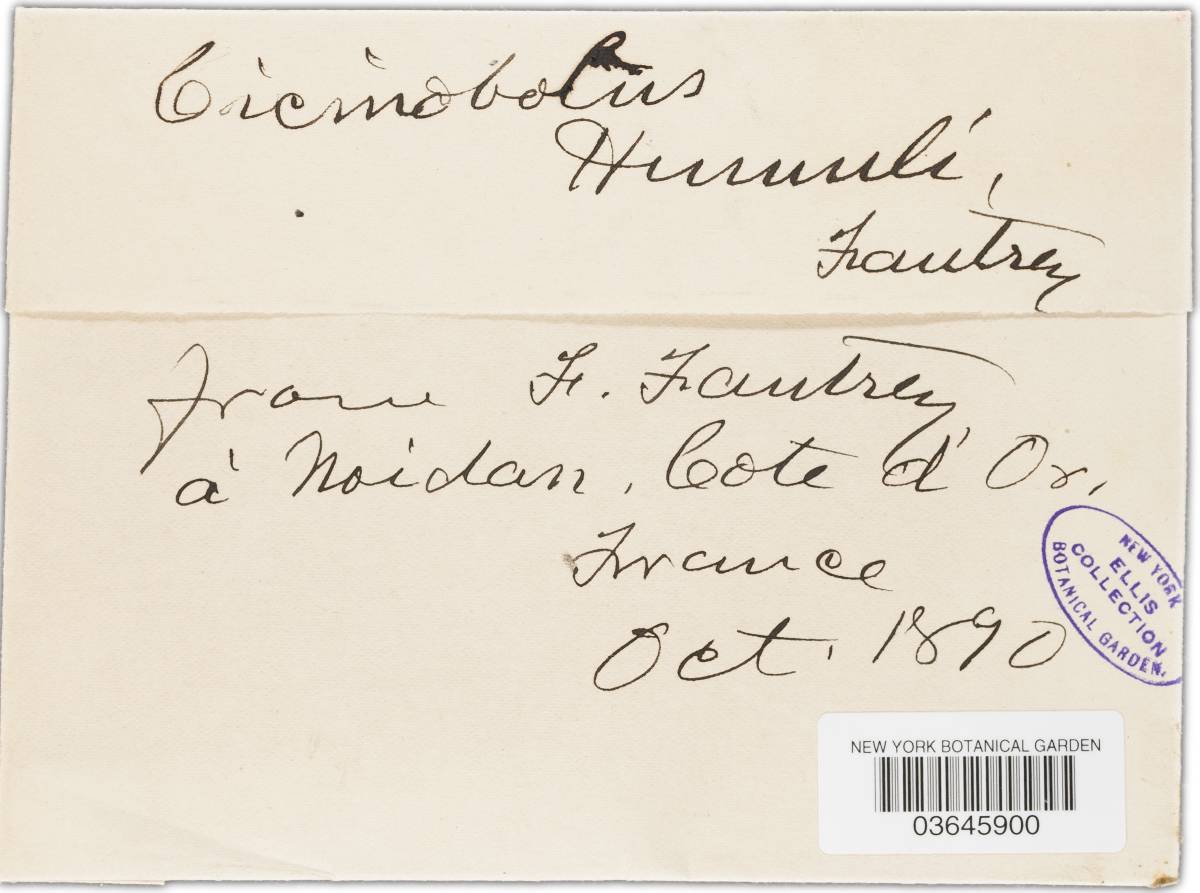 Cicinobolus
Humuli,
Fautrey
from F. Fautrey
à Noidan, Cote d'Or,
France
Oct. 1890
NEW YORK
ELLIS
COLLECTION
BOTANICAL GARDEN.
NEW YORK BOTANICAL GARDEN
03645900